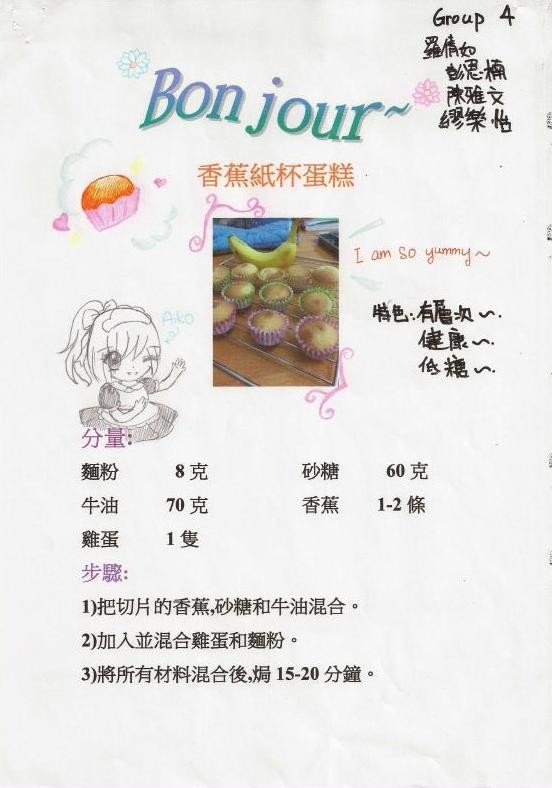 Group 4
羅倩如
彭恩楠
陳雅文
繆樂怡
Bonjour~
香蕉紙杯蛋糕
I am so yummy~
特色:有層次~.
健康~.
低糖~.
Aiko
分量:
麵粉 8 克 砂糖 60 克
牛油 70 克 香蕉 1-2 條
雞蛋 1 隻
步驟:
1)把切片的香蕉,砂糖和牛油混合。
2)加入並混合雞蛋和麵粉。
3)將所有材料混合後,焗 15-20 分鐘。